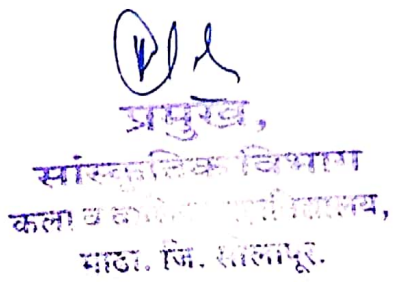 प्रमुख,
सांस्कृतिक विभाग
कला व महाविद्यालय,
माढा. जि. सोलापूर.